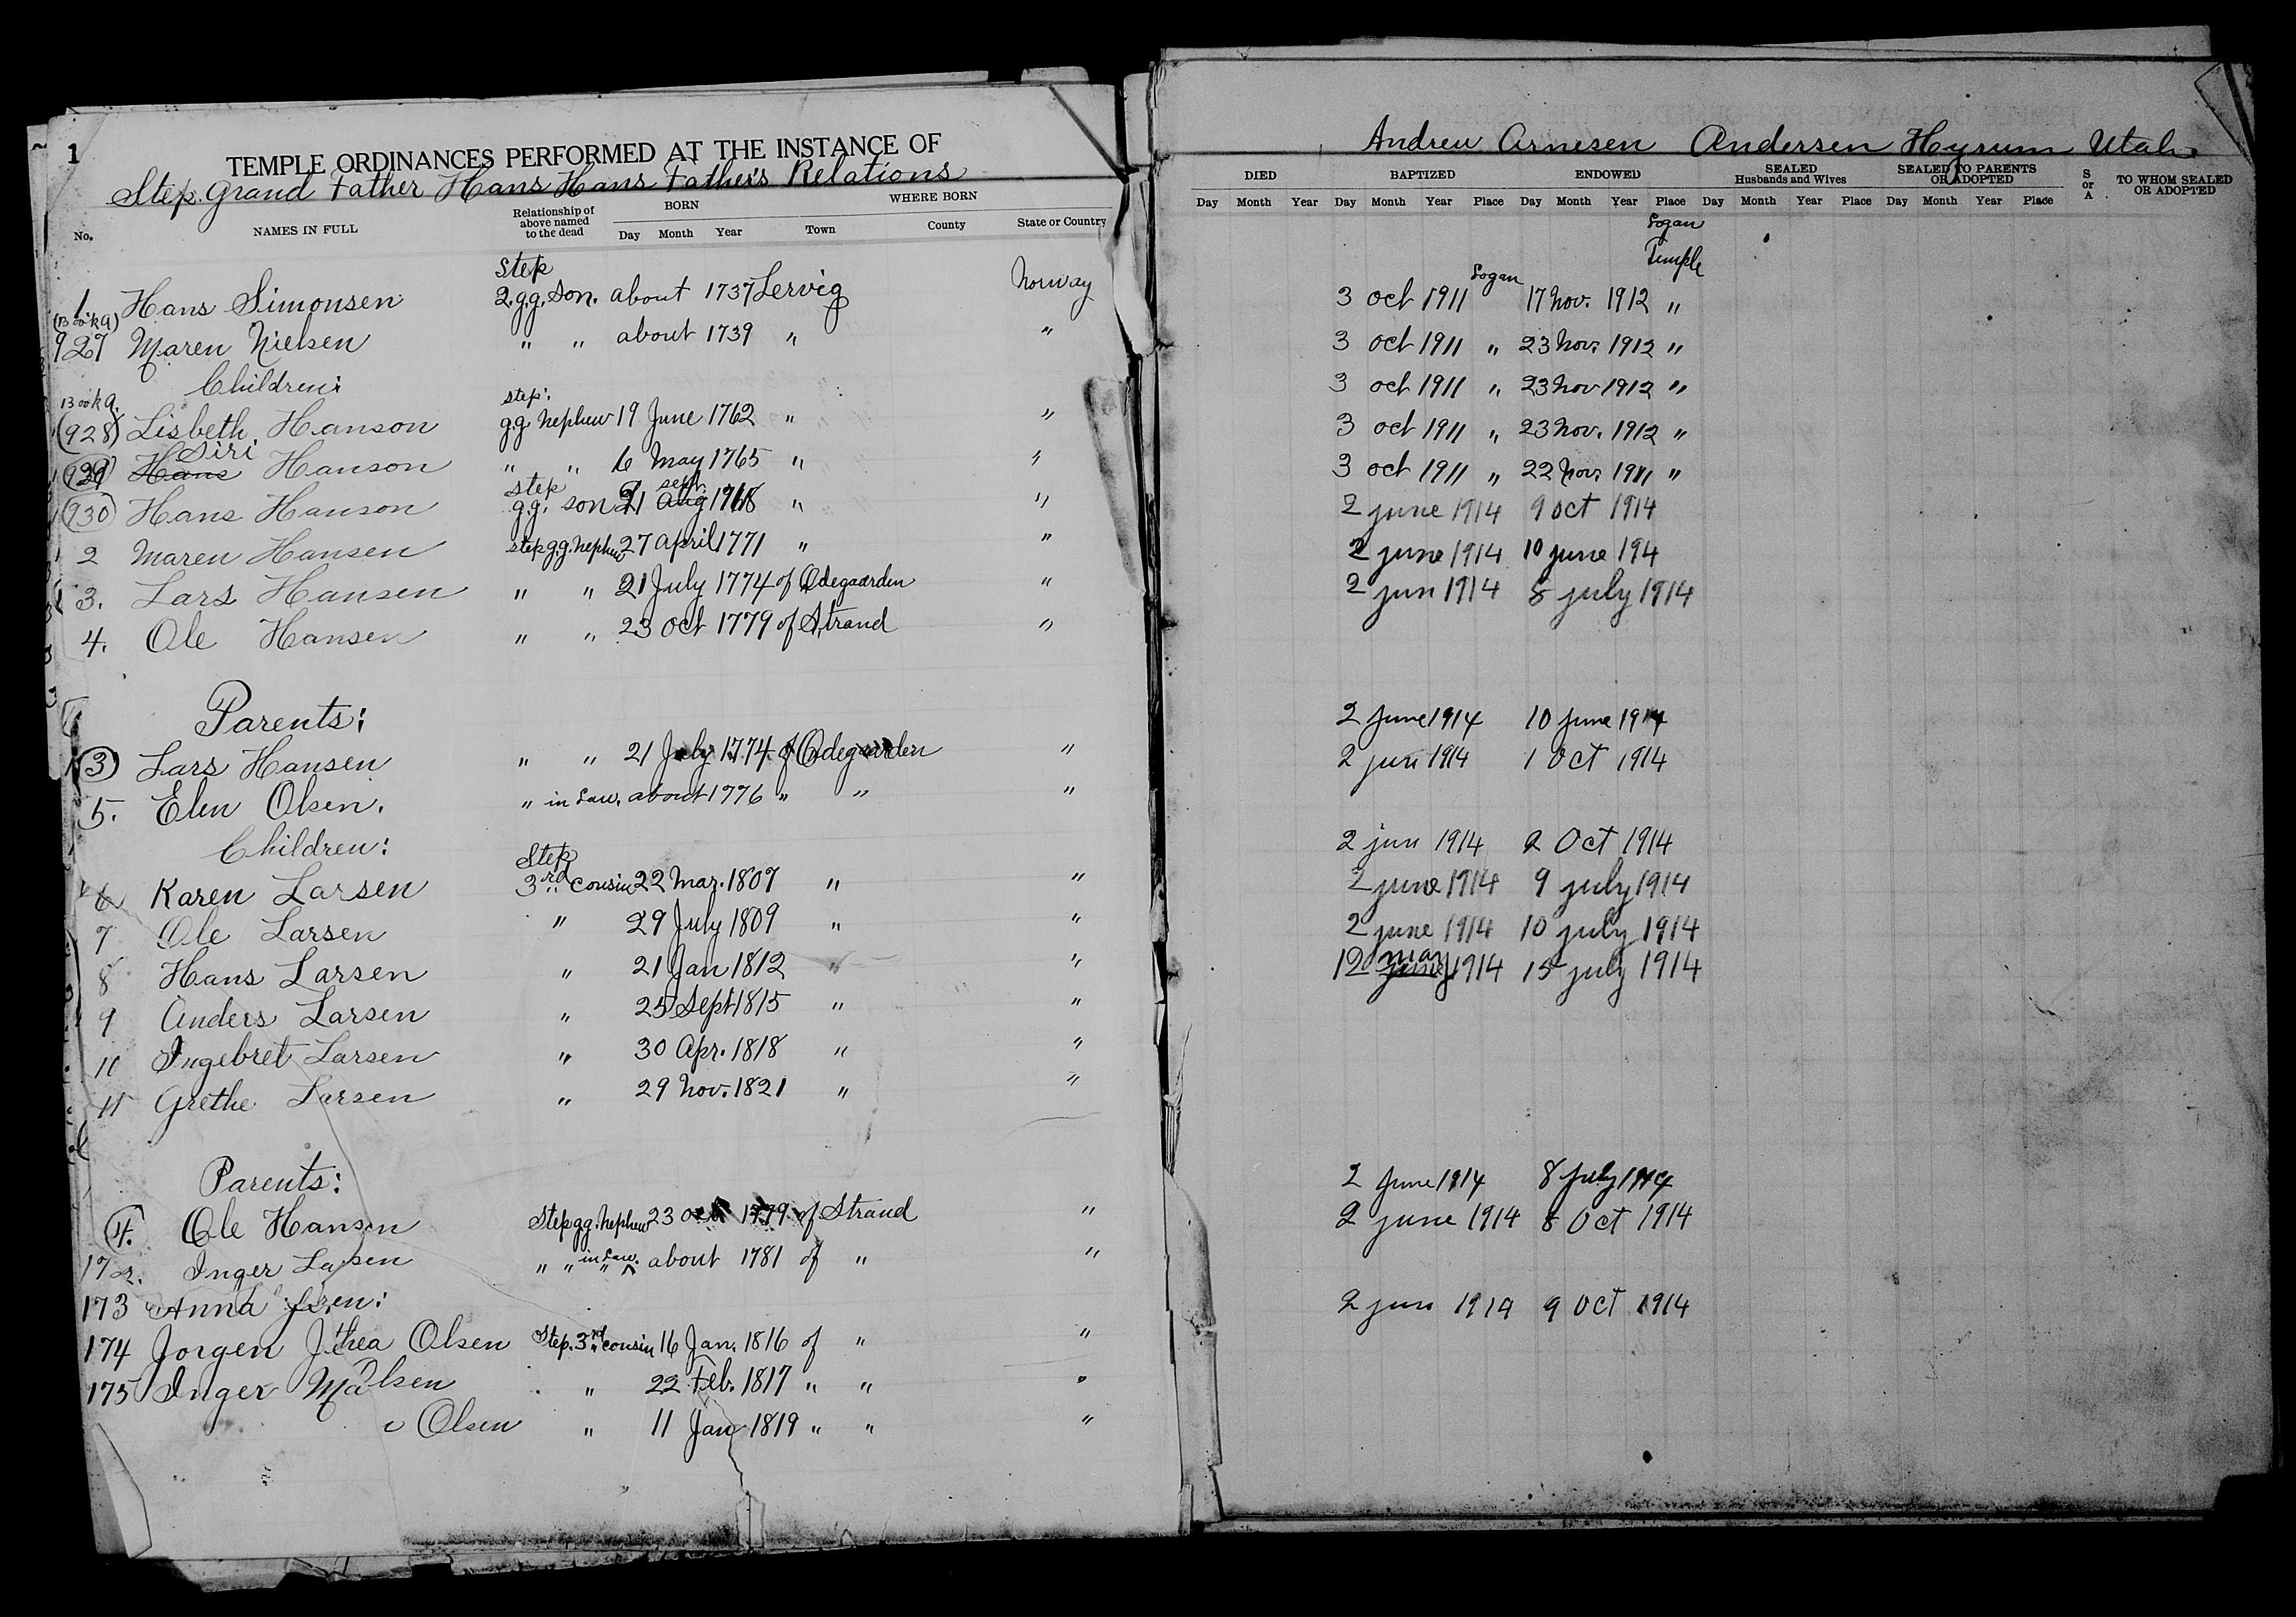 1
TEMPLE ORDINANCES PERFORMED AT THE INSTANCE OF
Step. Grand Father Hans Hans Father's Relations
No. NAMES IN FULL Relationship of above named to the dead BORN Day Month Year WHERE BORN Town County State or Country
1. Hans Simonsen Step 2.g.g. Son. about 1737 Lervig Norway
927 Maren Nielsen " " about 1739 " "
Children:
(928) Lisbeth Hanson step. g.g. Nephew 19 June 1762 " "
929 Hans Siri Hanson " " 6 May 1765 " "
(930) Hans Hanson step g.g. son 21 Aug Sept 1768 " "
2 Maren Hansen step g.g. Nephew 27 April 1771 " "
3. Lars Hansen " " 21 July 1774 of Odegaarden "
4. Ole Hansen " " 23 Oct 1779 of Strand "
Parents:
(3) Lars Hansen " " 21 July 1774 of Odegaarden "
5. Elen Olsen. " in Law. about 1776 " " "
Children:
6 Karen Larsen Step 3rd cousin 22 Mar. 1807 " "
7 Ole Larsen " 29 July 1809 " "
8 Hans Larsen " 21 Jan 1812 " "
9 Anders Larsen " 25 Sept 1815 " "
10 Ingebret Larsen " 30 Apr. 1818 " "
11 Grethe Larsen " 29 Nov. 1821 " "
Parents:
(4. Ole Hansen Step g.g. Nephew 23 Oct 1779 of Strand "
172. Inger Larsen " " in Law. " about 1781 of " "
173 Anna ren:
174 Jorgen thea Olsen Step. 3rd cousin 16 Jan. 1816 of " "
175 Inger Ma Olsen " 22 Feb. 1817 " " "
Olsen " 11 Jan 1819 " " "
Andrew Arnesen Andersen Hyrum Utah
DIED BAPTIZED ENDOWED SEALED Husbands and Wives SEALED TO PARENTS OR ADOPTED S or A TO WHOM SEALED OR ADOPTED
Day Month Year Day Month Year Place Day Month Year Place Day Month Year Place Day Month Year Place
Logan
Temple
3 Oct 1911 Logan 17 Nov. 1912 "
3 Oct 1911 " 23 Nov. 1912 "
3 Oct 1911 " 23 Nov 1912 "
3 Oct 1911 " 23 Nov. 1912 "
3 Oct 1911 " 22 Nov. 1911 "
2 june 1914 9 Oct 1914
2 june 1914 10 june 194
2 jun 1914 8 july 1914
2 June 1914 10 june 1914
2 jun 1914 1 Oct 1914
2 jun 1914 2 Oct 1914
2 june 1914 9 july 1914
2 june 1914 10 july 1914
12 may june 1914 15 july 1914
2 June 1914 8 July 1914
2 june 1914 8 Oct 1914
2 jun 1914 9 Oct 1914